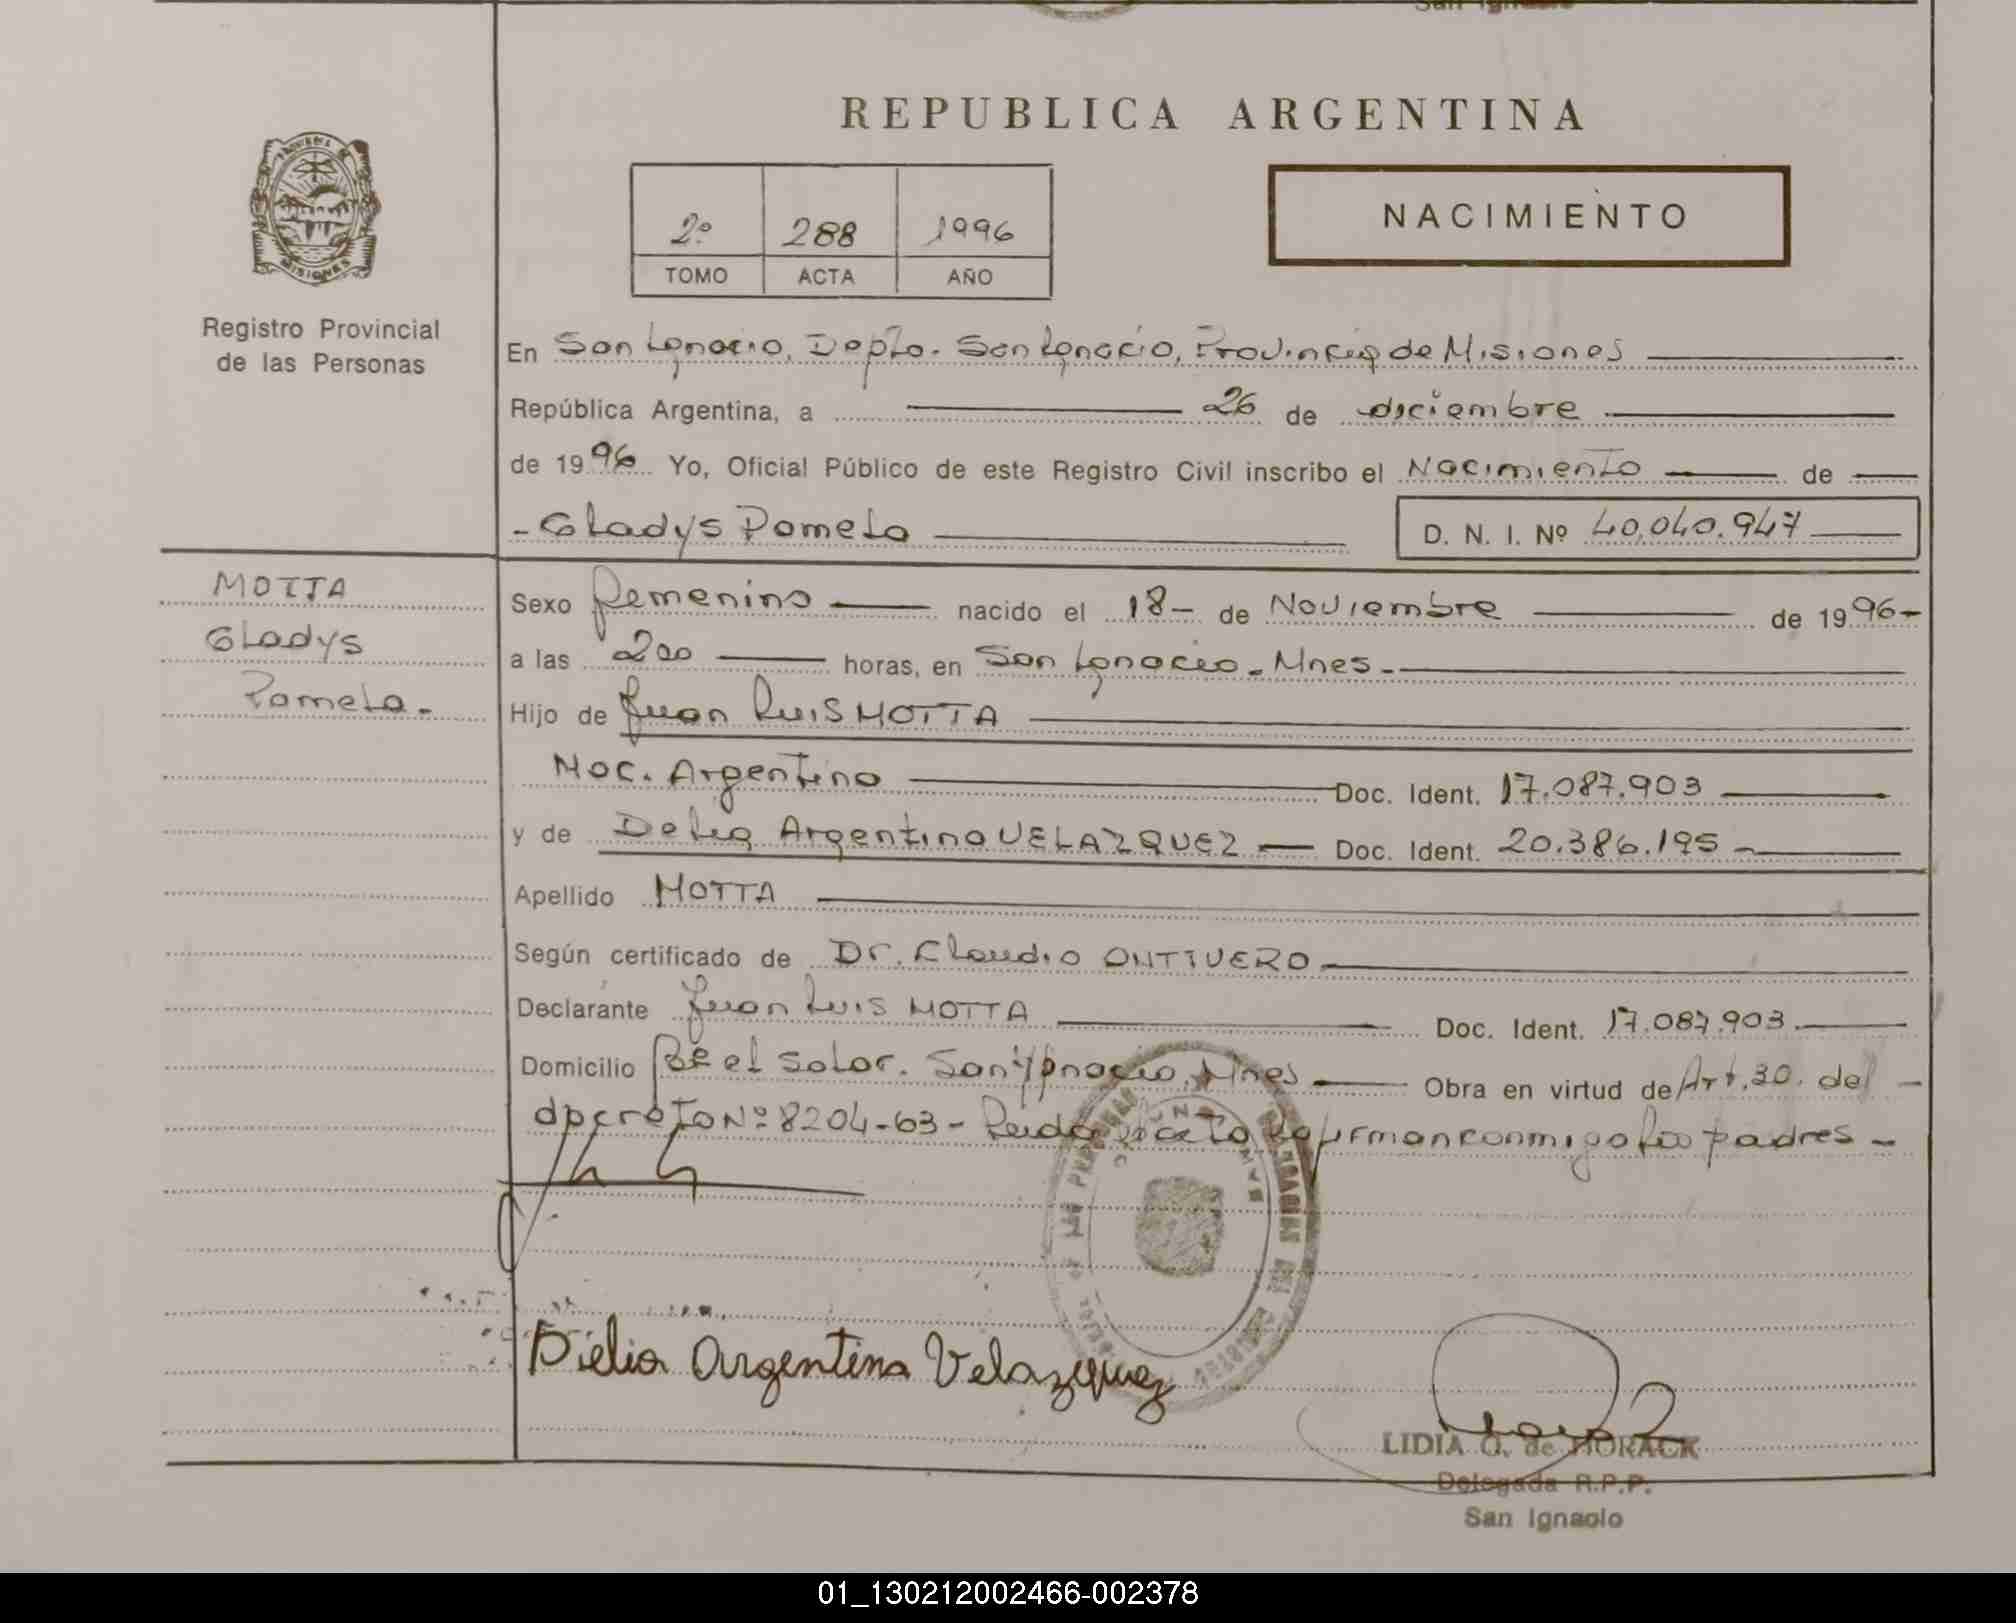 REPUBLICA ARGENTINA
PROVINCIA DE
MISIONES
Registro Provincial
de las Personas
2º 288 1996
TOMO ACTA AÑO
NACIMIENTO
En San Ignacio, Depto. San Ignacio, Provincia de Misiones
República Argentina, a 26 de diciembre
de 1996 Yo, Oficial Público de este Registro Civil inscribo el Nacimiento de
- Gladys Pamela
D. N. I. Nº 40.040.947
MOTTA
Gladys
Pamela.-
Sexo femenino nacido el 18- de Noviembre de 1996-
a las 200 horas, en San Ignacio - Mnes.-
Hijo de Juan Luis MOTTA
Nac. Argentina Doc. Ident. 17.087.903
y de Delia Argentina VELAZQUEZ Doc. Ident. 20.386.195
Apellido MOTTA
Según certificado de Dr. Claudio ONTIVERO
Declarante Juan Luis MOTTA Doc. Ident. 17.087.903
Domicilio Bº el Solar. San Ignacio, Mnes Obra en virtud de Art. 30. del
decreto Nº 8204-63- Leida el acta la firman conmigo los padres -
Delia Argentina Velazquez
LIDIA O. de HORACK
Delegada R.P.P.
San Ignacio
01_130212002466-002378